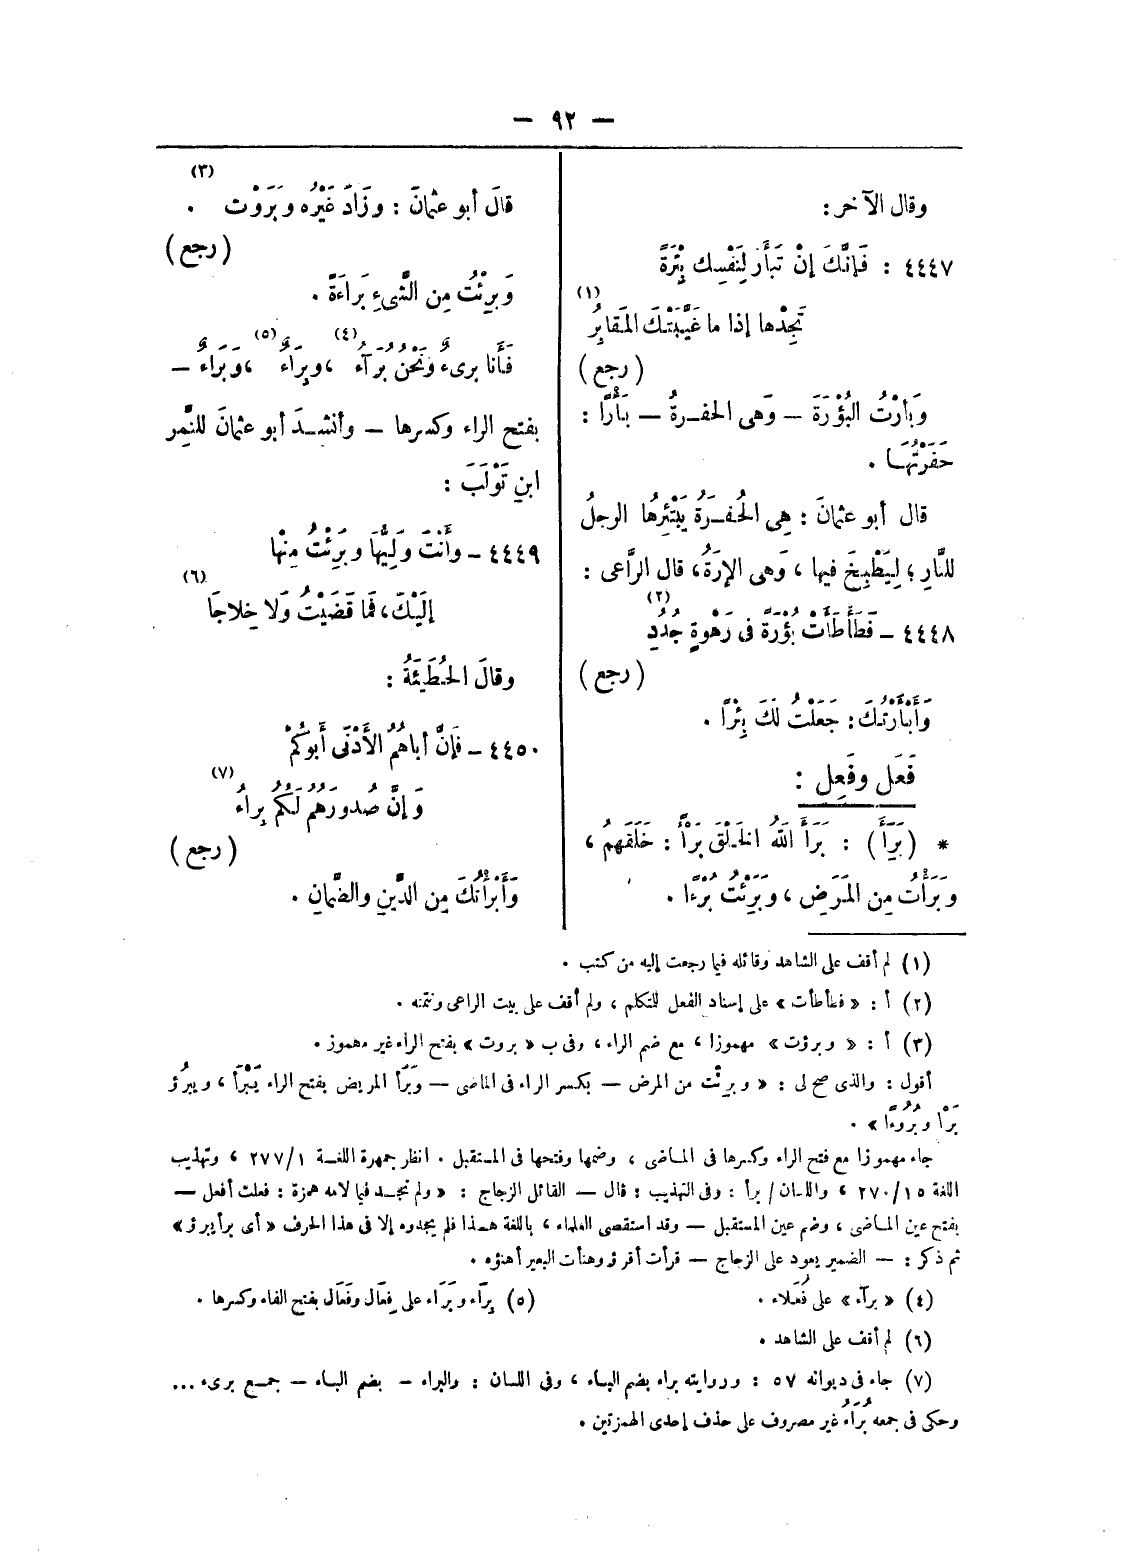 — ٩٢ —
وقال الآخر:
٤٤٤٧ : فَإنَّكَ إنْ تَبأَرْ لِنَفْسِك بِئْرَةً
تَجِدْها إذا ما غَيَّبَتْكَ المَقابِرُ (١)
( رجع )
وَبأَرْتُ البُؤْرَةَ — وَهى الحفرةُ — بَأْرًا :
حَفَرْتُهَا .
قال أبو عثمانَ : هِى الحُفرَةُ يَبْتَئِرُها الرجلُ
للنَّارِ ؛ لِيَطْبِخَ فيها ، وَهى الإرَةُ، قال الرَّاعى :
٤٤٤٨ — فَطَأَطَأَتْ بُؤْرَةً فى رَهْوةٍ جُدُدِ (٢)
( رجع )
وَأَبْأَرْتكَ : جَعَلْتُ لَكَ بِئْرًا .
فَعَل وفَعِل :
* (بَرَأَ) : بَرَأَ اللهُ الخَلْقَ بَرْأً : خَلَقَهُمْ ،
وبَرَأْتُ مِن المَرَضِ ، وبَرِئْتُ بُرْءًا .
قالَ أبو عثمانَ : وزَادَ غَيْرُه وبَرَوْت (٣) .
( رجع )
وَبرِئْتُ مِن الشَّىءِ بَراءَةً .
فَأَنا بَرىءٌ ونَحْنُ بُرَآءُ (٤) ، وبِرَاءٌ (٥) ، وبَرَاءٌ —
بفتح الراء وكسرها — وأنشدَ أبو عثمانَ للنَّمِر
ابنِ تَوْلَبَ :
٤٤٤٩ — وأَنْتَ وَلِيُّها وبَرِئْتُ مِنْها
إلَيْكَ، فَما قَضَيْتُ وَلا خِلاجَا (٦)
وقالَ الحُطَيْئَةُ :
٤٤٥٠ — فَإنَّ أباهُمُ الأَدْنَى أَبوكُمْ
وَإنَّ صُدورَهُمُ لَكُمُ بِراءُ (٧)
( رجع )
وَأَبْرَأتُكَ مِن الدَّينِ والضَّمانِ .
(١) لم أقف على الشاهد وقائله فيما رجعت إليه من كتب .
(٢) أ : « فطأطأت » على إسناد الفعل للمتكلم ، ولم أقف على بيت الراعى وتتمته .
(٣) أ : « وبرؤت » مهموزا ، مع ضم الراء ، وفى ب « بروت » بفتح الراء غير مهموز .
أقول : والذى صح لى : « وبرِئْت من المرض — بكسر الراء فى الماضى — وبَرَأ المريض بفتح الراء يَبْرَأ ، ويبرُؤ
بَرْأ وبُرُوءًا » .
جاء مهموزا مع فتح الراء وكسرها فى الماضى ، وضمها وفتحها فى المستقبل . انظر جمهرة اللغة ١/٢٧٧ ، وتهذيب
اللغة ١٥/٢٧٠ ، واللسان / برأ : وفى التهذيب : قال — القائل الزجاج : « ولم نجد فيما لامه همزة : فعلت أفعل —
بفتح عين الماضى ، وضم عين المستقبل — وقد استقصى العلماء ، باللغة هذا فلم يجدوه إلا فى هذا الحرف « أى برأ يبرؤ »
ثم ذكر : — الضمير يعود على الزجاج — قرأت أقرؤ وهنأت البعير أهنؤه .
(٤) « برآء » على فُعَلاء . (٥) بِرَاء وبَرَاء على فِعَال وفَعَال بفتح الفاء وكسرها .
(٦) لم أقف على الشاهد .
(٧) جاء فى ديوانه ٥٧ : وروايته براء بضم الباء ، وفى اللسان : والبراء — بضم الباء — جمع برىء ...
وحكى فى جمعه بُرَاءُ غير مصروف على حذف إحدى الهمزتين .